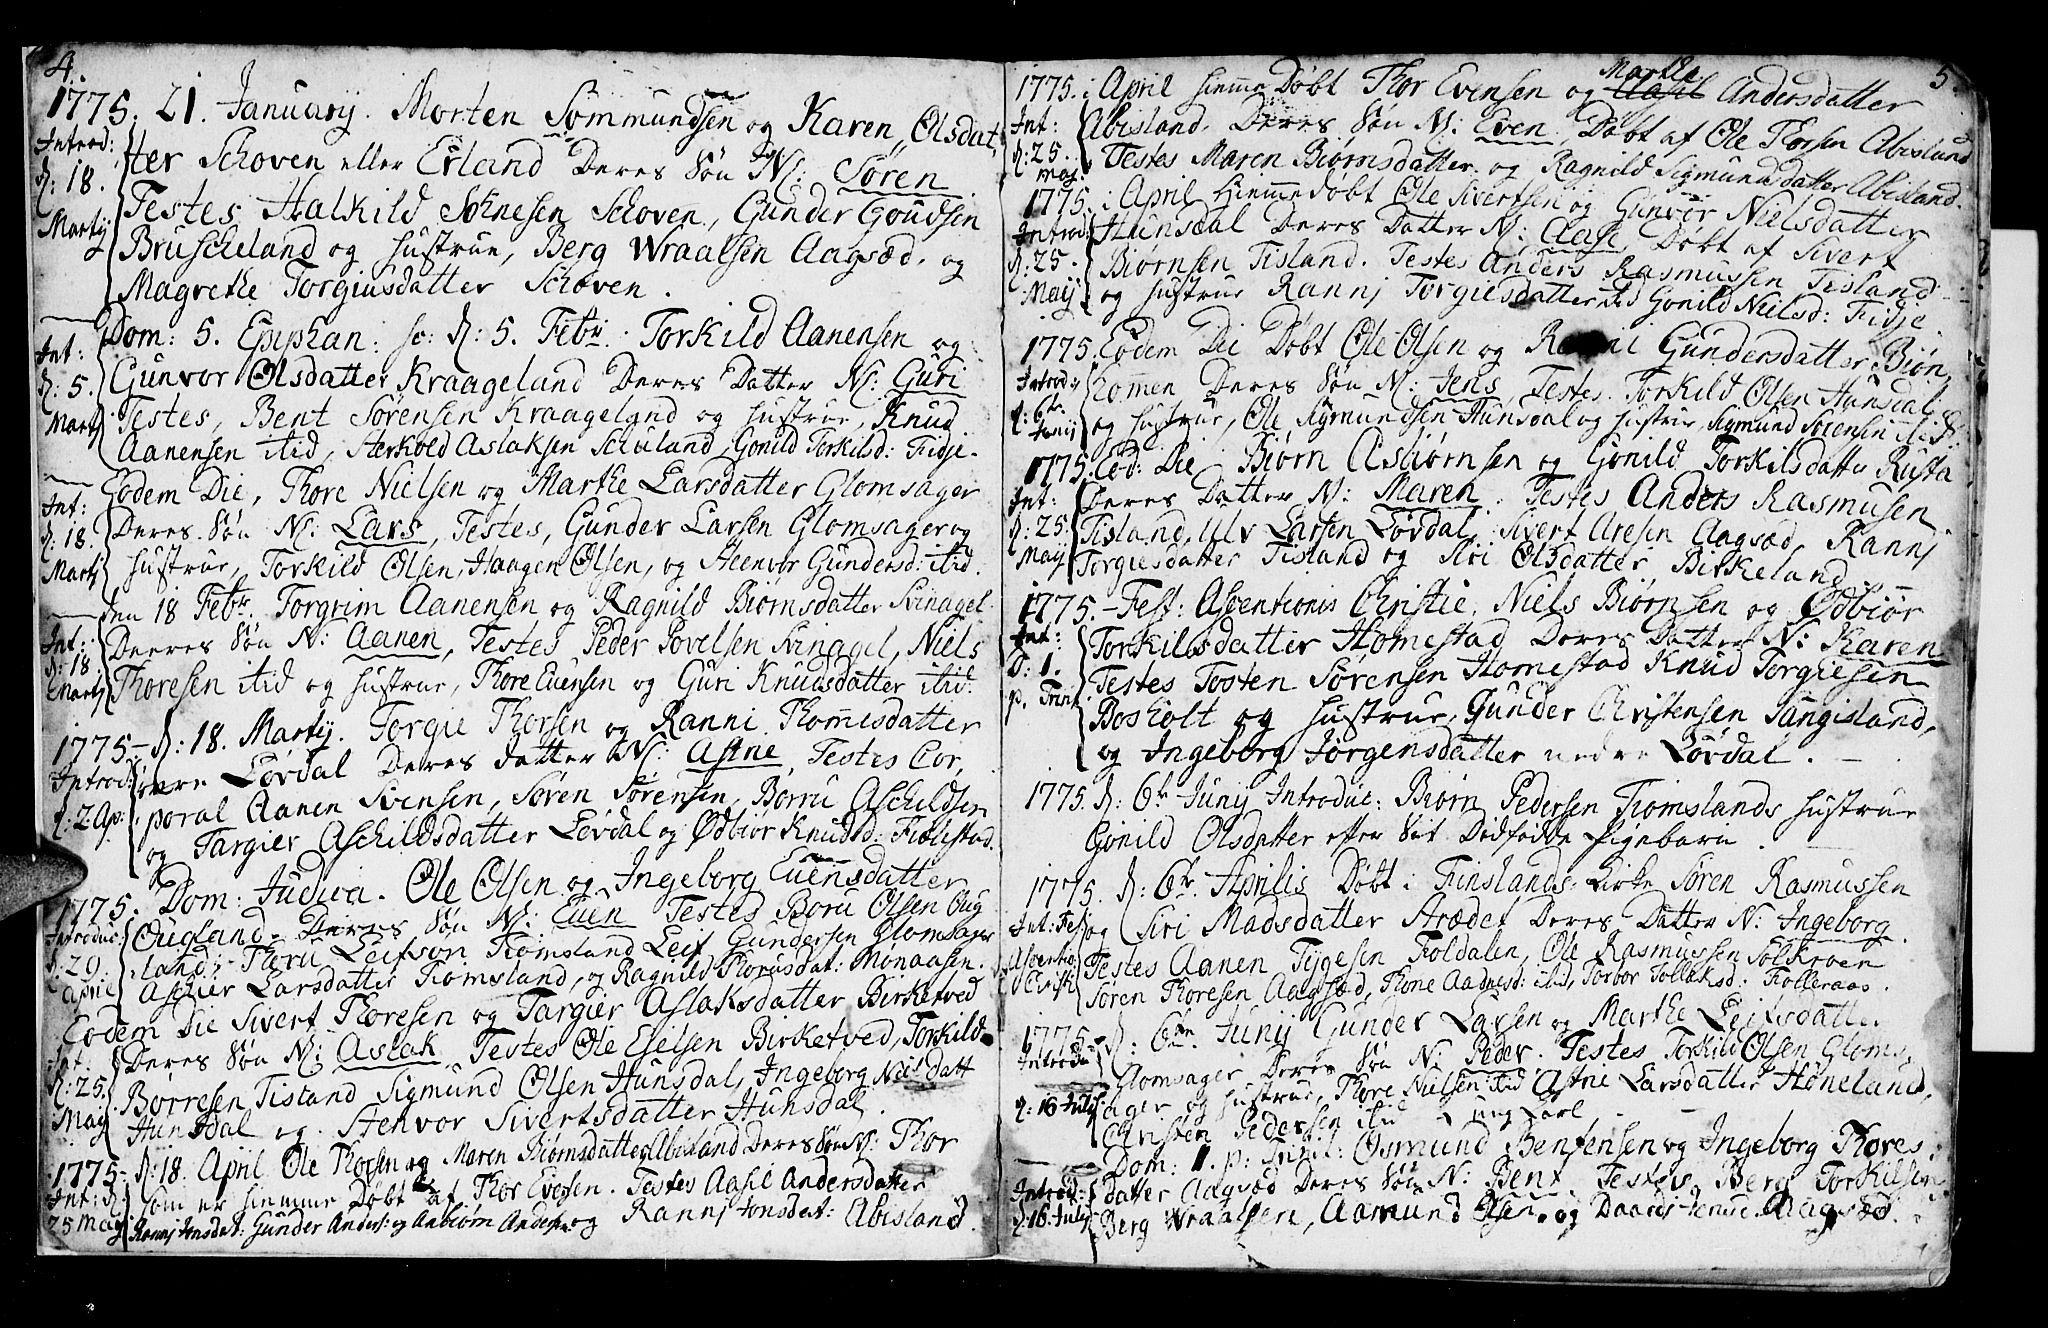 4.
1775. 21. Januarij. Morten Sommundsen og Karen Olsdat,
Introd: ter Schoven eller Erland Deres Søn N: Søren
d: 18. Testes Halkild Schoven, Gunder Goudsen
Martij Bruscheland og Hustrue, Berg Wraalsen Aagsæd. og
Magrethe Torgiusdatter Schoven.
Dom: 5. Epiphan: d: 5. Febr. Torkild Aanensen og
Int: Gunvor Olsdatter Kraageland Deres Datter N: Guri
d: 5. Testes, Bent Sørensen Kraageland og Hustrue, Knud
Martij Aanensen itid, Herkold Aslaksen Schuland, Gonild Torkilsd: Fidje.
Eodem Die, Thore Nielsen og Marthe Larsdatter Glomsager
Int: Deres Søn N: Lars, Testes, Gunder Larsen Glomsager og
d: 18. Hustrue, Torkild Olsen, Haagen Olsen, og Steenvor Gundersd: itid.
Martij
den 18 Febr. Torgrim Aanensen og Ragnild Biørnsdatter Svinagel
Int: Deeres Søn N: Aanen, Testes Peder Povelsen Svinagel, Niels
d: 18 Thoresen itid og Hustrue, Thore Evensen og Guri Knudsdatter itid.
Martij
1775 – d: 18. Martij. Torgie Thorsen og Ranni Thommesdatter
Introd: øvre Løvdal Deres Datter N: Astne, Testes Cor,
d: 2. Ap: poral Aanen Svensen, Søren Sørensen, Borru Aschildsen
og Targier Aschildsdatter Løvdal og Ødbiør Knudsd: Fiølestad.
1775. Dom: Judica. Ole Olsen og Ingeborg Euensdatter
Introduc: Ougland Deres Søn N: Euen Testes Boru Olsen Oug
d: 29. land, Thoru Leifson Tiomsland Leif Gundersen Glomsager
April Aschier Larsdatter Tiomsland, og Ragnild Thorusdat: Monaasen.
Eodem Die Sivert Thoresen og Targier Aslaksdatter Birketved
Int: Deres Søn N: Aslak, Testes Ole Eselsen Birketved, Torkild
d: 25. Børresen Tisland Sigmund Olsen Hunsdal, Ingeborg Nielsdatt
Maij Hunsdal og Stenvor Sivertsdatter Hunsdal.
1775 – d: 18 April Ole Thorsen og Maren Biørnsdatter Abisland Deres Søn N: Thor
Int: d: som er hiemme Døbt af Thor Evensen. Testes Aasil Andersdatter
25 Maij Ranni Jonsdat: Gunder Anders: og Anbiørn Andersen og Rannj Jonsdat: Abisland.
5
1775. i April hiemme Døbt Thor Evensen og Marthe Aasil Andersdatter
Int: Abisland. Deres Søn N: Even, Døbt af Ole Thorsen Abisland
d: 25. Testes Maren Biørnsdatter og Ragnild Sigmundsdatter Abisland.
Maj.
1775. i April Hiemmedøbt Ole Sivertsen og Gunvor Nielsdatter
Introd: Hunsdal Deres Datter N: Aase, Døbt af Sivert
d: 25. Biørnsen Tisland. Testes Anders Rasmussen Tisland
Maij og Hustrue Rannj Torgiesdatter itid Gonild Nielsd: Fidje.
1775. Eodem Die Døbt Ole Olsen og Gundersdatter Biøn,
Introd: kommen Deres Søn N: Jens, Testes. Torkild Olsen Hunsdal
d: 6te Junij og Hustrue, Ole Sigmundsen Hunsdal og Hustrue, Sigmund Sørensen itid.
1775. Eod: Die Biørn Asbiørnsen og Gonild Torkilsdatter Rusta
Int: Deres Datter N: Maren. Testes Anders Rasmusen
d: 25 Tisland, Ulv Larsen Løvdal, Sivert Aresen Aagsæd, Rannj
Maij Torgiesdatter Tisland og Siri Olsdatter Birkeland.
1775. – Fest: Ascentionis Christie, Niels Biørnsen og Ødbiør
Int: Torkilsdatter Homestad Deres Datter N: Karen
D: 1. Testes Tosten Sørensen Homestad Knud Torgiesen
p. Trinit. Bosholt og Hustrue, Gunder Christensen Sangisland,
og Ingeborg Jørgensdatter nedre Løvdal.
1775. d: 6te Junij Introduc: Biørn Pedersen Tiomslands Hustrue
Gonild Olsdatter efter Sit Dødfødde Pigebarn.
1775. d: 6te Aprilis Døbt i Finslands Kirke Søren Rasmussen
Int: Fes og Siri Madsdatter Arædet Deres Datter N: Ingeborg.
Ascentio Testes Aanen Tygesen Foldalen, Ole Rasmussen
Christi Søren Thoresen Aagsæd, Thone Aadnesd: itid, Torbor Tollaksd: Folleraas.
1775 – d: 6te Junij Gunder Larsen og Marthe Leifsdatter
Introdu: Glomsager Deres Søn N: Peder. Testes Torkild Olsen Gloms,
d: 16 Julij sager og Hustrue, Thore Nielsen itid Astrie Larsdatter Høneland,
Christen Pedersen itid ung Karl.
Dom: 1. p: Trinit: Osmund Bentensen og Ingeborg Thores
Introd: datter Aagsæd Deres Søn N: Bent Testes Berg Torkilsen
d: 16. Julij Berg Wraalsen, Aamund Olsen, og Aagsæd.